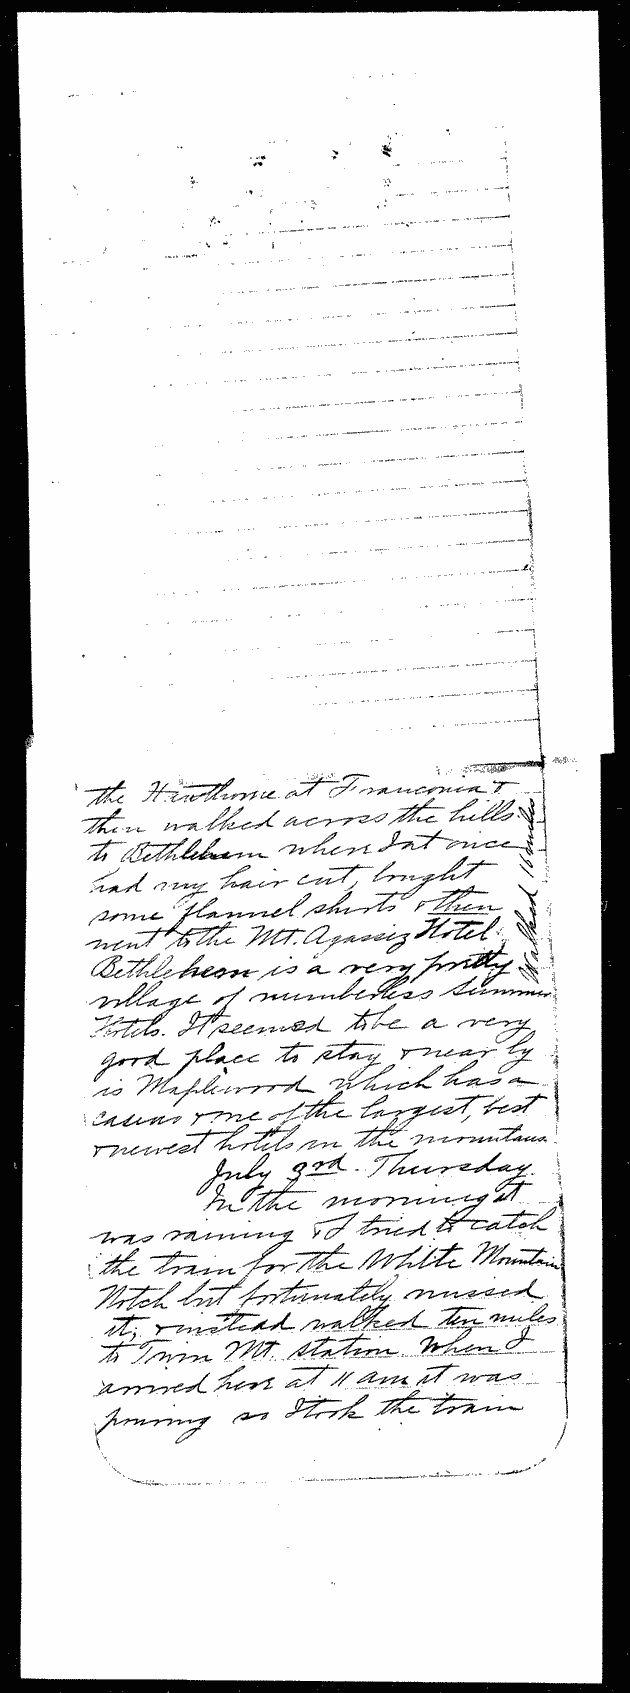 the Hawthorne at Franconia &
then walked across the hills
to Bethlehem where I at once
had my hair cut, bought
some flannel shirts & then
went to the Mt. Agassiz Hotel.
Bethlehem is a very pretty
village of numberless Summer
Hotels. It seemed to be a very
good place to stay & near by
is Maplewood which has a
casino & one of the largest, best
& newest hotels in the mountains.
July 3rd. Thursday.
In the morning it
was raining & I tried to catch
the train for the White Mountain
Notch but fortunately missed
it, & instead walked ten miles
to Twin Mt. station. When I
arrived here at 11 am it was
pouring so I took the train
Walked 16 miles